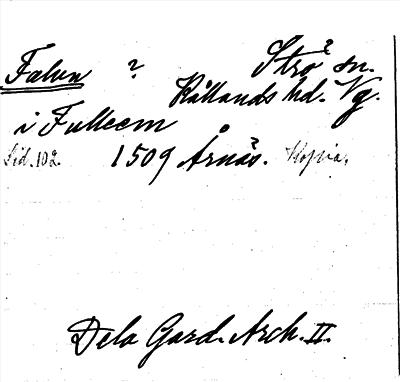 Falun ? Strö? sn.
Kållands hd. Vg.
i Fulleem
Sid. 102. 1509 Årnäs? Kopia.
Dela Gard. Arch. II.